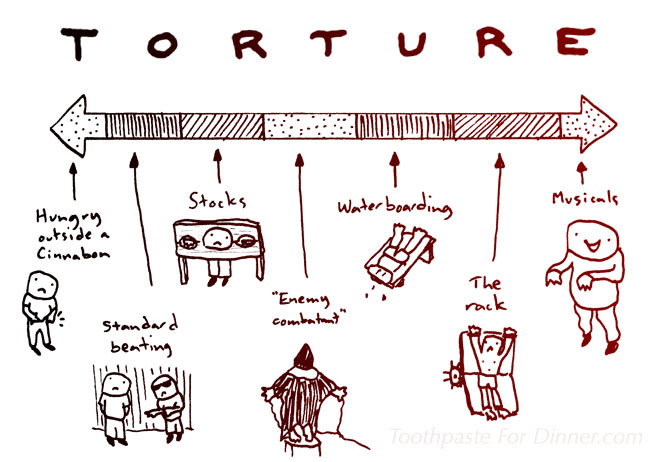 TORTURE
Hungry
outside a
Cinnabon
Standard
beating
Stocks
"Enemy
combatant"
Waterboarding
The
rack
Musicals
Toothpaste For Dinner.com